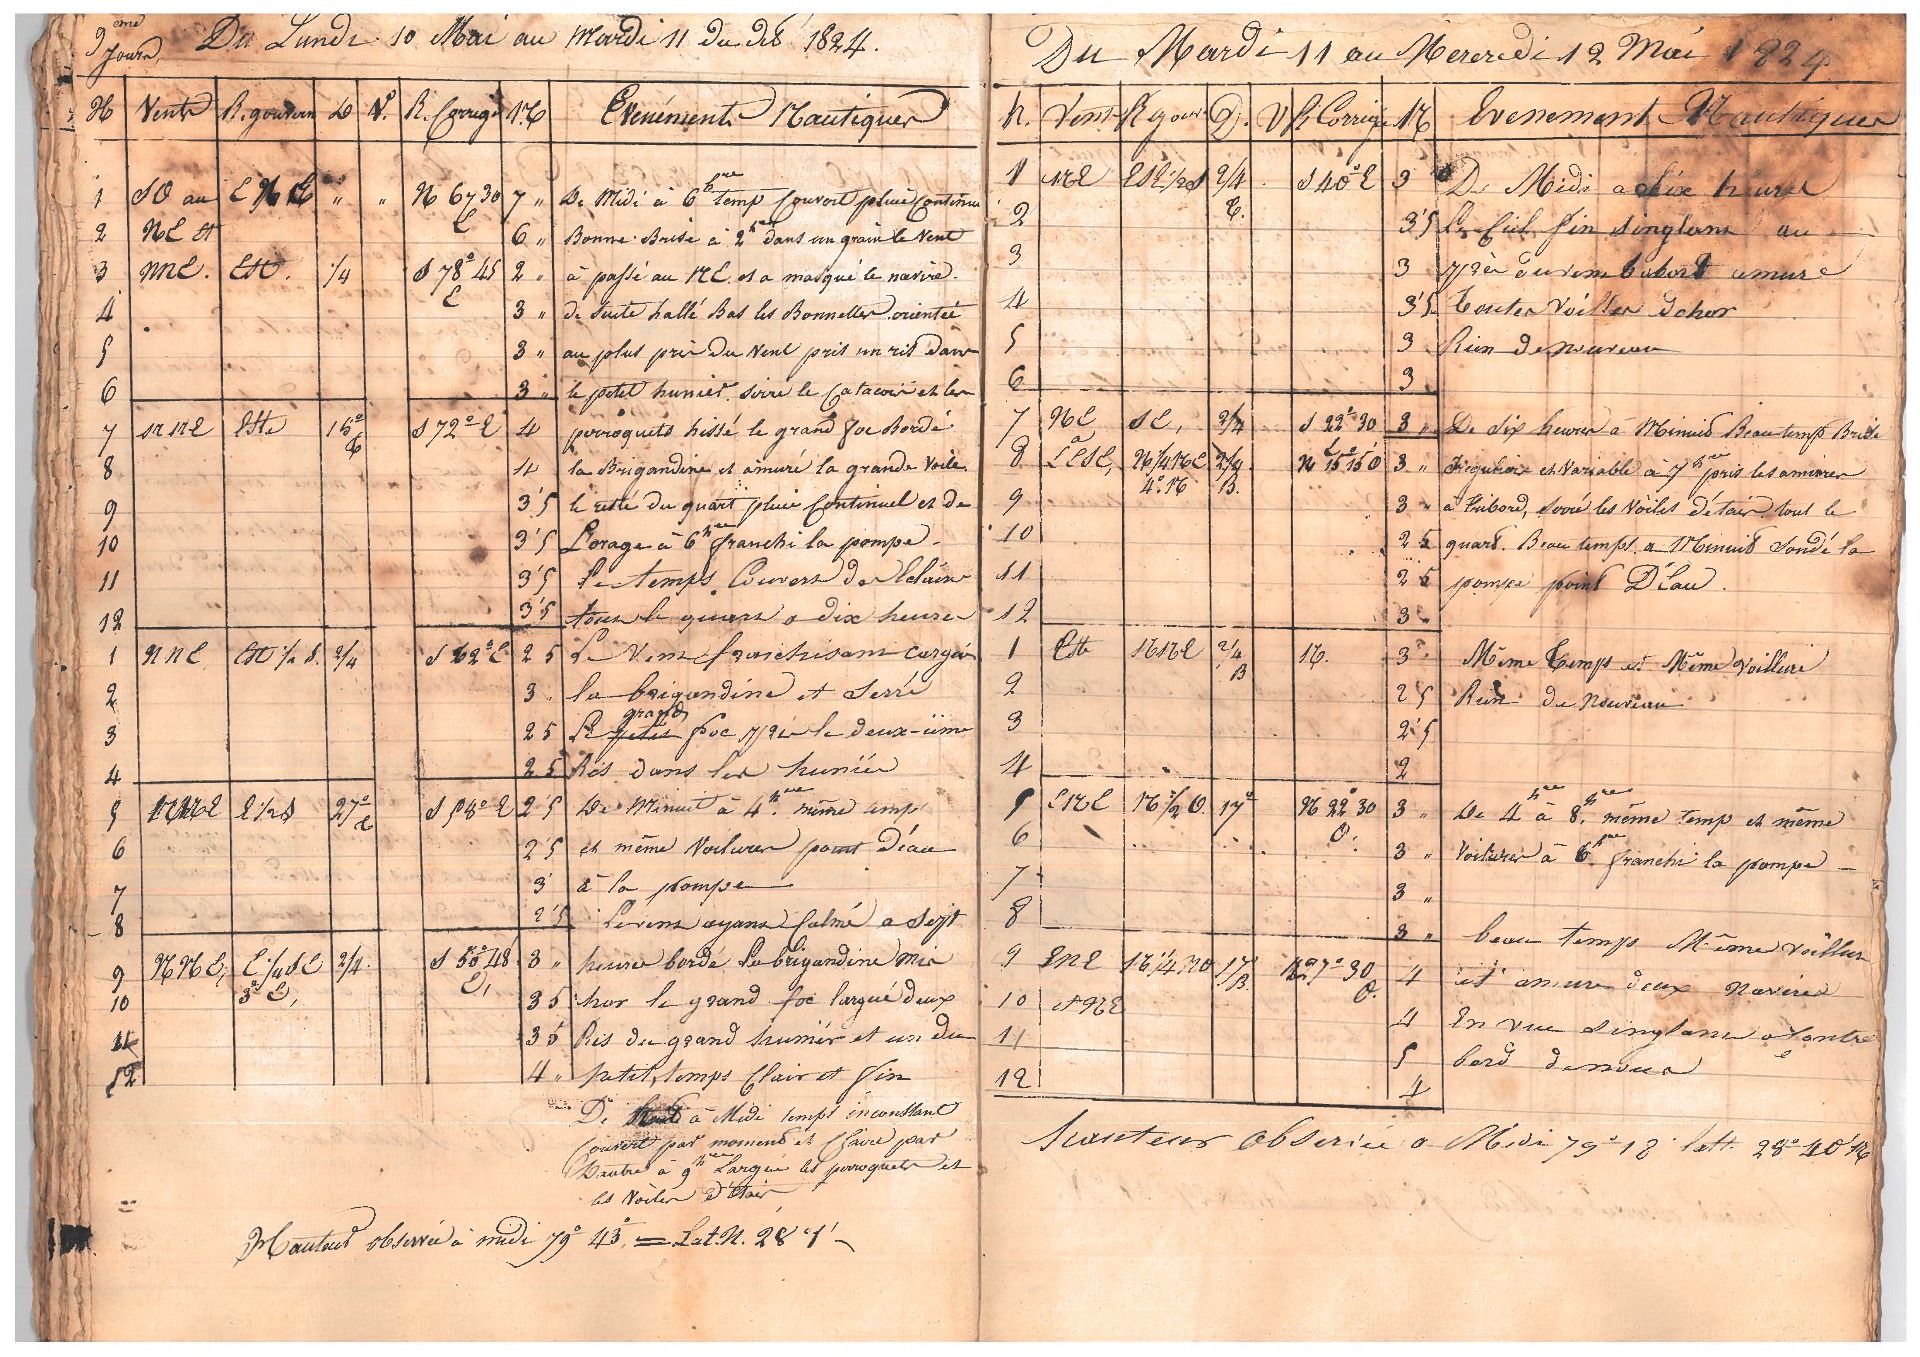 9me Jours Du Lundi 10 Mai au Mardi 11 du dit 1824.
H Vents R. gouvern D V.n R. Corrigé N.C Evenéments Nautiques
1 SO au ENE " " N 67 30 E 7 " De Midi à 6 hres temp Couvert pluie Continu
2 NE et 6 " Bonne Brise à 2 hres dans un grain le Vent
3 NNE. Est. 1/4 S 78° 45 E 2 " à passé au NE. et a masqué le navire.
4 3 " de suite hallé Bas les Bonnettes orientée
5 3 " au plus près Du Vent pris un ris dans
6 3 " le petit hunier. serré le Catacoir et les
7 NNE Est 15° T S 72° E 4 perroquets hissé le grand foc Bordé
8 4 la Brigandine et amuré la grande Voile
9 3'5 le resté du quart pluie Continuel et de
10 3'5 L'orage à 6 hres franchi la pompe
11 3'5 Le temps Couvert de Eclaire
12 3'5 tous le quart a dix heures
1 NNE Est 1/2 S. 2/4 S 62° E 2 5 Le Vent franchisant Cargué
2 3 " la brigandine et Serré
3 2 5 Le petit grand foc pris le deux-ième
4 2 5 Ris dans les hunier
5 NNE E 1/2 S 27° S 58° E 2'5 De Minuit à 4 hres même temp
6 2'5 et même Voilures point d'éau
7 3' à la pompe
8 2'5 Le vent ayant Calmé a Sept
9 NNE, E 1/4 SE 3° E, 2/4. S 55° 48 E, 3 " heures bordé La brigandine mis
10 3 5 hor le grand foc largué deux
11 3 5 Ris du grand hunier et un du
12 4 " petit, temps Clair et fin
De à Midi temps inconstant
Couvert par moment et Claire par
D'autre à 9 hres Largué les perroquets et
les Voiles d'Etair
Hauteur observée à midi 79° 43' = Lat. N. 28° 1'
Du Mardi 11 au Mercredi 12 Mai 1824
h. Vent R gouv. D. V R Corrigé N Evenement Nautiques
1 NE ESE 1/2 S 2/4 T. S 40° E 3 De Midi a Six heures
2 3'5 Le Ciel fin Singlant au
3 3 près du vent babord amure
4 3'5 Toutes Voilles dehor
5 3 Rien de nouveau
6 3
7 NE SE, 2/4 S 22° 30 E 3 " De Six heures à Minuit Beau temp Brise
8 à L'ESE, N 1/4 NE 4° N 2/4 B. N 15° 15 O 3 " Reguliere et Variable à 7 hres pris les amures
9 3 " à Tribord, serré les Voiles d'étair tout le
10 2 5 quart. Beau temps a Minuit Sondé la
11 2 5 pompe point D'Eau.
12 3
1 Este NNE 2/4 B N. 3 Même Temps et Même Voillure
2 2 5 Rien de nouveau
3 2'5
4 2
5 ENE N 1/2 O. 17° N 22° 30 O. 3 " De 4 hres à 8 hres même temp et même
6 3 " Voilures à 6 hres franchi la pompe
7 3 "
8 3 " beau temps Même Voillure
9 ENE N 1/4 NO 17° B. 27° 30 O. 4 et amure deux navires
10 et NE 4 En vue Singlant a Contre
11 5 bord de nous
12 4
Hauteur Observée a Midi 79° 18' latt. 28° 40' N